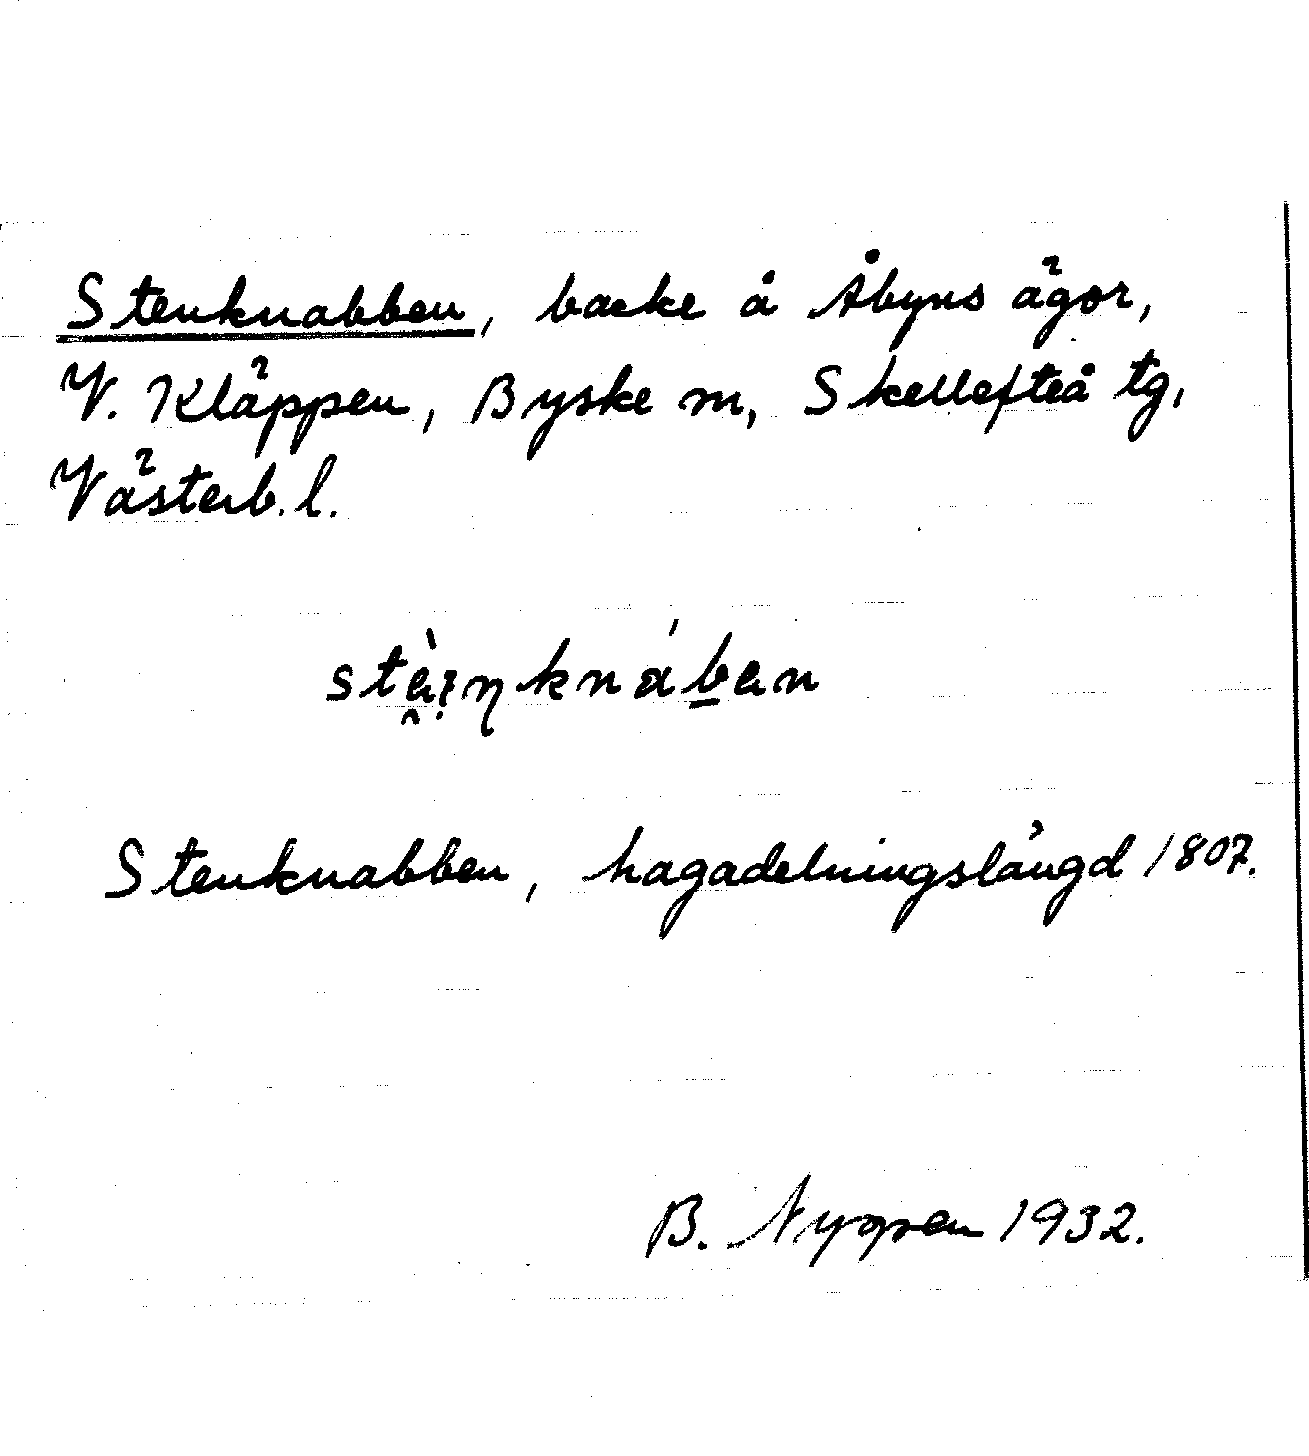 Stenknabben, backe å Åbyns ägor,
V. Kläppen, Byske sn, Skellefteå tg,
Västerb. l.
Stenknabben, hagadelningslängd 1807.
B. Nygren 1932.